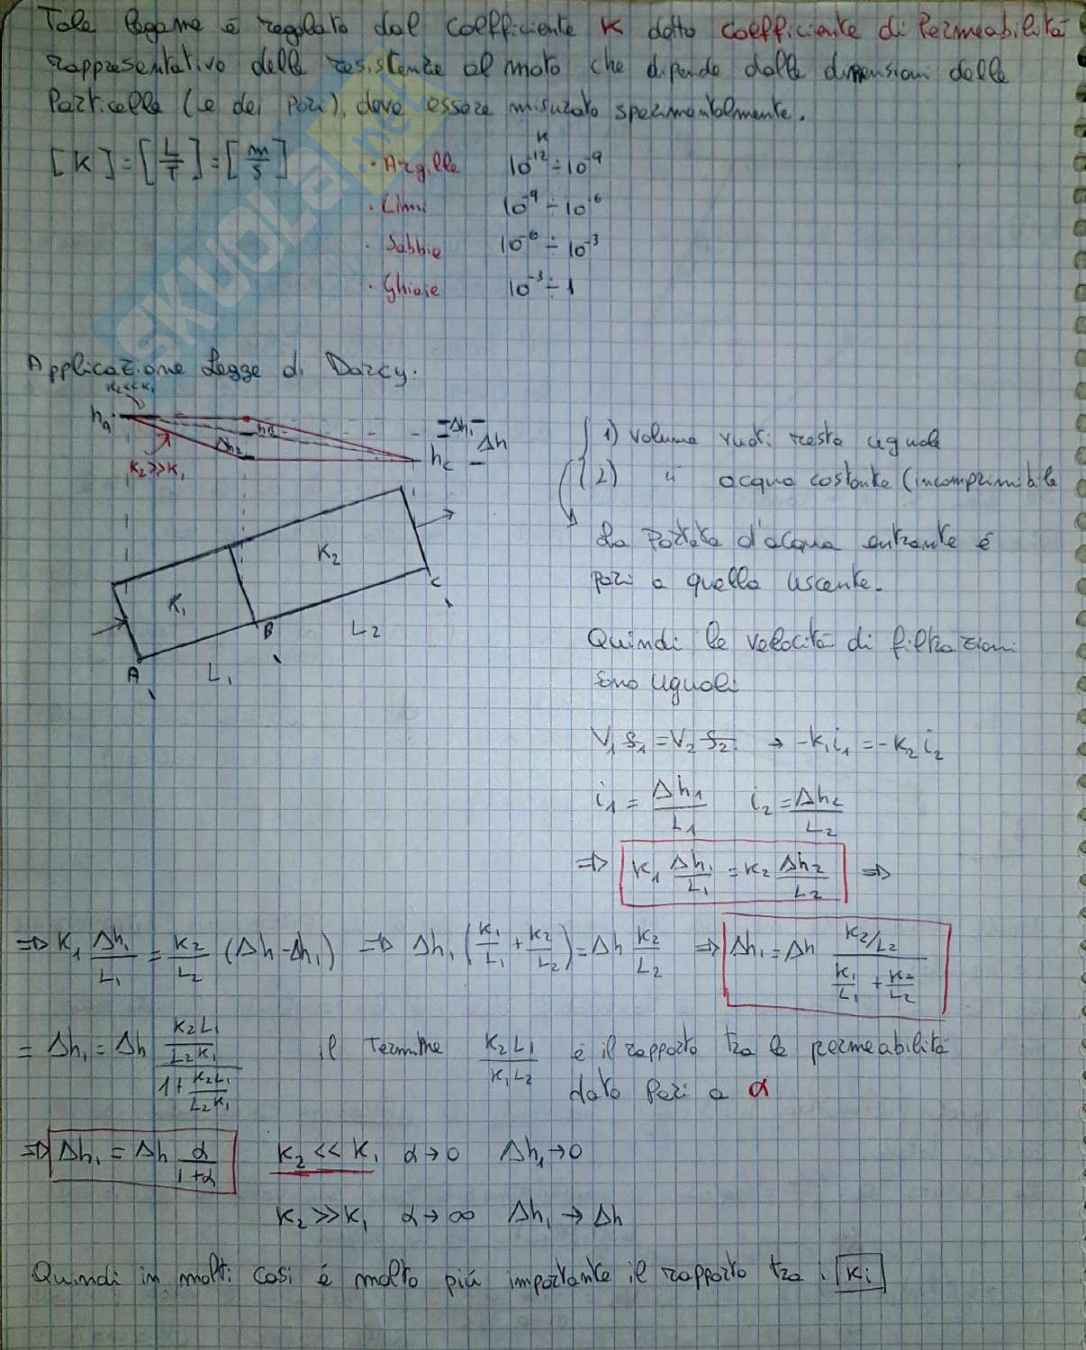 Tale legame è regolato dal coefficiente K detto coefficiente di Permeabilità
rappresentativo delle resistenze al moto che dipende dalle dimensioni delle
Particelle (e dei pori), deve essere misurato sperimentalmente.
K
[K] = [L/T] = [m/s]
· Argille 10^-12 ÷ 10^-9
· Limi 10^-9 ÷ 10^-6
· Sabbie 10^-6 ÷ 10^-3
· Ghiaie 10^-3 ÷ 1
SKUOLA.net
Applicazione Legge di Darcy.
K2<<K1
hA
hB
Δh2
K2>>K1
Δh1
Δh
hC
K1
K2
A
B
C
L1
L2
1) volume vuoti resta uguale
2) " acqua costante (incomprimibile
La Portata d'acqua entrante è
pari a quella uscente.
Quindi le velocità di filtrazioni
sono uguali
V1 S1 = V2 S2 → -K1 i1 = -K2 i2
i1 = Δh1/L1 i2 = Δh2/L2
⇒ K1 Δh1/L1 = K2 Δh2/L2 ⇒
⇒ K1 Δh1/L1 = K2/L2 (Δh - Δh1) ⇒ Δh1 (K1/L1 + K2/L2) = Δh K2/L2 ⇒ Δh1 = Δh (K2/L2)/(K1/L1 + K2/L2)
= Δh1 = Δh (K2L1/L2K1)/(1 + K2L1/L2K1) il Termine K2L1/K1L2 è il rapporto tra le permeabilità
dato pari a α
⇒ Δh1 = Δh α/(1+α) K2 << K1 α→0 Δh1→0
K2 >> K1 α→∞ Δh1 → Δh
Quindi in molti casi è molto più importante il rapporto tra i Ki